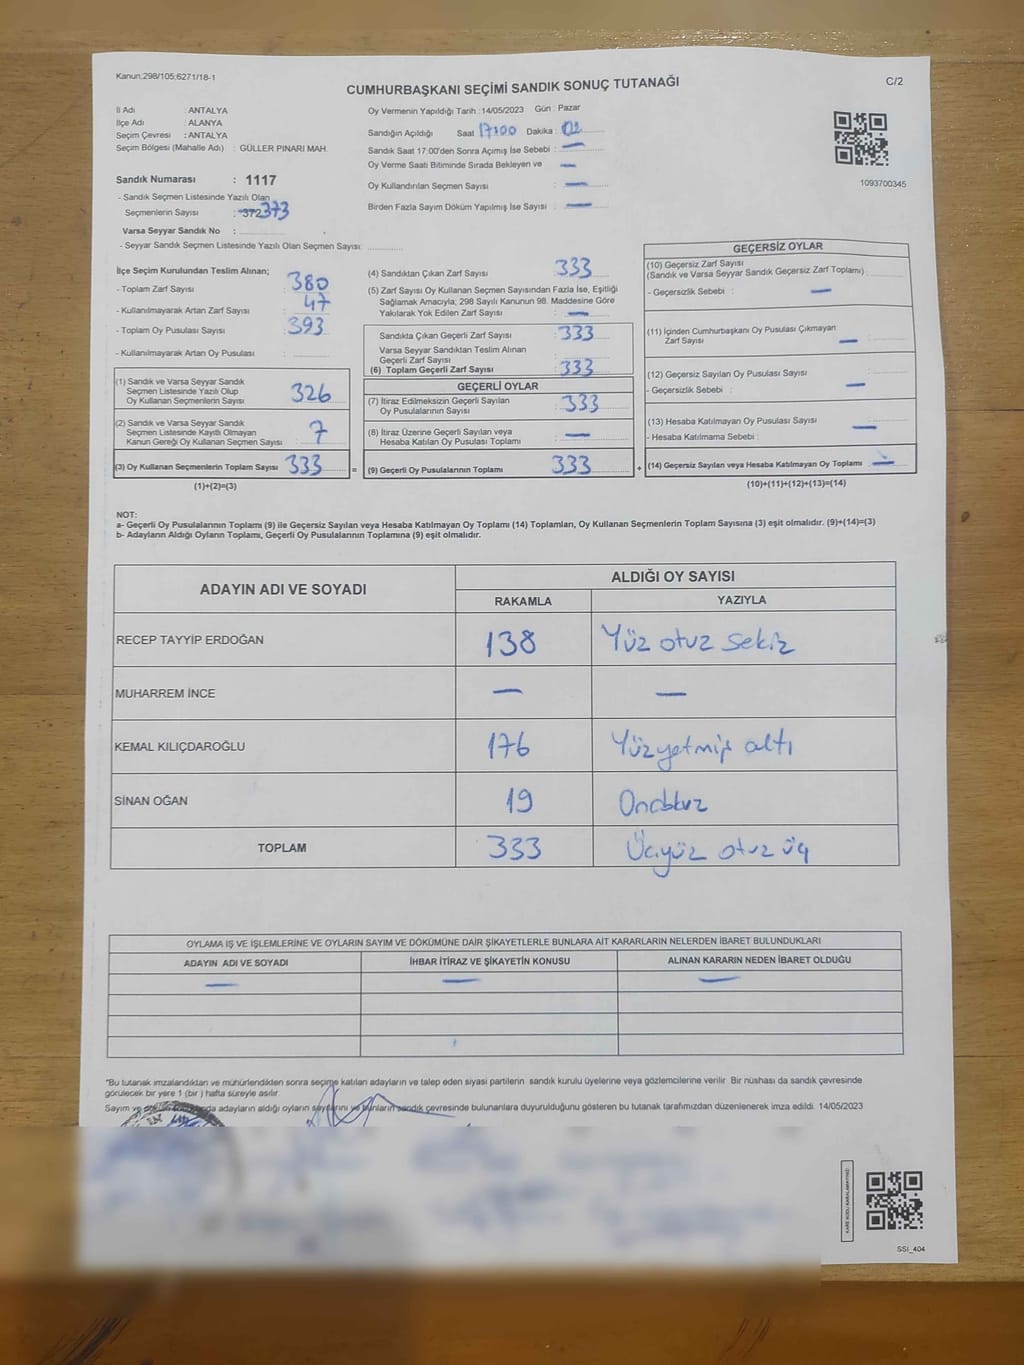 Kanun:298/105;6271/18-1
C/2
CUMHURBAŞKANI SEÇİMİ SANDIK SONUÇ TUTANAĞI
İli Adı : ANTALYA
İlçe Adı : ALANYA
Seçim Çevresi : ANTALYA
Seçim Bölgesi (Mahalle Adı) : GÜLLER PINARI MAH.
Sandık Numarası : 1117
- Sandık Seçmen Listesinde Yazılı Olan
Seçmenlerin Sayısı : 372 373
Varsa Seyyar Sandık No :
- Seyyar Sandık Seçmen Listesinde Yazılı Olan Seçmen Sayısı:
Oy Vermenin Yapıldığı Tarih : 14/05/2023 Gün : Pazar
Sandığın Açıldığı Saat 17:00 Dakika :
Sandık Saat 17:00'den Sonra Açımış İse Sebebi : —
Oy Verme Saati Bitiminde Sırada Bekleyen ve —
Oy Kullandırılan Seçmen Sayısı : —
Birden Fazla Sayım Döküm Yapılmış İse Sayısı : —
1093700345
İlçe Seçim Kurulundan Teslim Alınan;
- Toplam Zarf Sayısı : 380
- Kullanılmayarak Artan Zarf Sayısı : 47
- Toplam Oy Pusulası Sayısı : 393
- Kullanılmayarak Artan Oy Pusulası :
(1) Sandık ve Varsa Seyyar Sandık
Seçmen Listesinde Yazılı Olup
Oy Kullanan Seçmenlerin Sayısı : 326
(2) Sandık ve Varsa Seyyar Sandık
Seçmen Listesinde Kayıtlı Olmayan
Kanun Gereği Oy Kullanan Seçmen Sayısı : 7
(3) Oy Kullanan Seçmenlerin Toplam Sayısı : 333
(1)+(2)=(3)
(4) Sandıktan Çıkan Zarf Sayısı : 333
(5) Zarf Sayısı Oy Kullanan Seçmen Sayısından Fazla İse, Eşitliği
Sağlamak Amacıyla; 298 Sayılı Kanunun 98. Maddesine Göre
Yakılarak Yok Edilen Zarf Sayısı : —
Sandıkta Çıkan Geçerli Zarf Sayısı : 333
Varsa Seyyar Sandıktan Teslim Alınan
Geçerli Zarf Sayısı :
(6) Toplam Geçerli Zarf Sayısı : 333
GEÇERLİ OYLAR
(7) İtiraz Edilmeksizin Geçerli Sayılan
Oy Pusulalarının Sayısı : 333
(8) İtiraz Üzerine Geçerli Sayılan veya
Hesaba Katılan Oy Pusulası Toplamı : —
= (9) Geçerli Oy Pusulalarının Toplamı : 333
GEÇERSİZ OYLAR
(10) Geçersiz Zarf Sayısı
(Sandık ve Varsa Seyyar Sandık Geçersiz Zarf Toplamı)
- Geçersizlik Sebebi : —
(11) İçinden Cumhurbaşkanı Oy Pusulası Çıkmayan
Zarf Sayısı : —
(12) Geçersiz Sayılan Oy Pusulası Sayısı :
- Geçersizlik Sebebi : —
(13) Hesaba Katılmayan Oy Pusulası Sayısı : —
- Hesaba Katılmama Sebebi :
+ (14) Geçersiz Sayılan veya Hesaba Katılmayan Oy Toplamı : —
(10)+(11)+(12)+(13)=(14)
NOT:
a- Geçerli Oy Pusulalarının Toplamı (9) ile Geçersiz Sayılan veya Hesaba Katılmayan Oy Toplamı (14) Toplamları, Oy Kullanan Seçmenlerin Toplam Sayısına (3) eşit olmalıdır. (9)+(14)=(3)
b- Adayların Aldığı Oyların Toplamı, Geçerli Oy Pusulalarının Toplamına (9) eşit olmalıdır.
ADAYIN ADI VE SOYADI
ALDIĞI OY SAYISI
RAKAMLA YAZIYLA
RECEP TAYYİP ERDOĞAN 138 Yüz otuz sekiz
MUHARREM İNCE — —
KEMAL KILIÇDAROĞLU 176 Yüzyetmiş altı
SİNAN OĞAN 19 Ondokuz
TOPLAM 333 Üçyüz otuz üç
OYLAMA İŞ VE İŞLEMLERİNE VE OYLARIN SAYIM VE DÖKÜMÜNE DAİR ŞİKAYETLERLE BUNLARA AİT KARARLARIN NELERDEN İBARET BULUNDUKLARI
ADAYIN ADI VE SOYADI İHBAR İTİRAZ VE ŞİKAYETİN KONUSU ALINAN KARARIN NEDEN İBARET OLDUĞU
— — —
"Bu tutanak imzalandıktan ve mühürlendikten sonra seçime katılan adayların ve talep eden siyasi partilerin sandık kurulu üyelerine veya gözlemcilerine verilir. Bir nüshası da sandık çevresinde
görülecek bir yere 1 (bir ) hafta süreyle asılır.
Sayım ve adayların aldığı oyların sayılarını ve bunların sandık çevresinde bulunanlara duyurulduğunu gösteren bu tutanak tarafımızdan düzenlenerek imza edildi. 14/05/2023
SSI_404